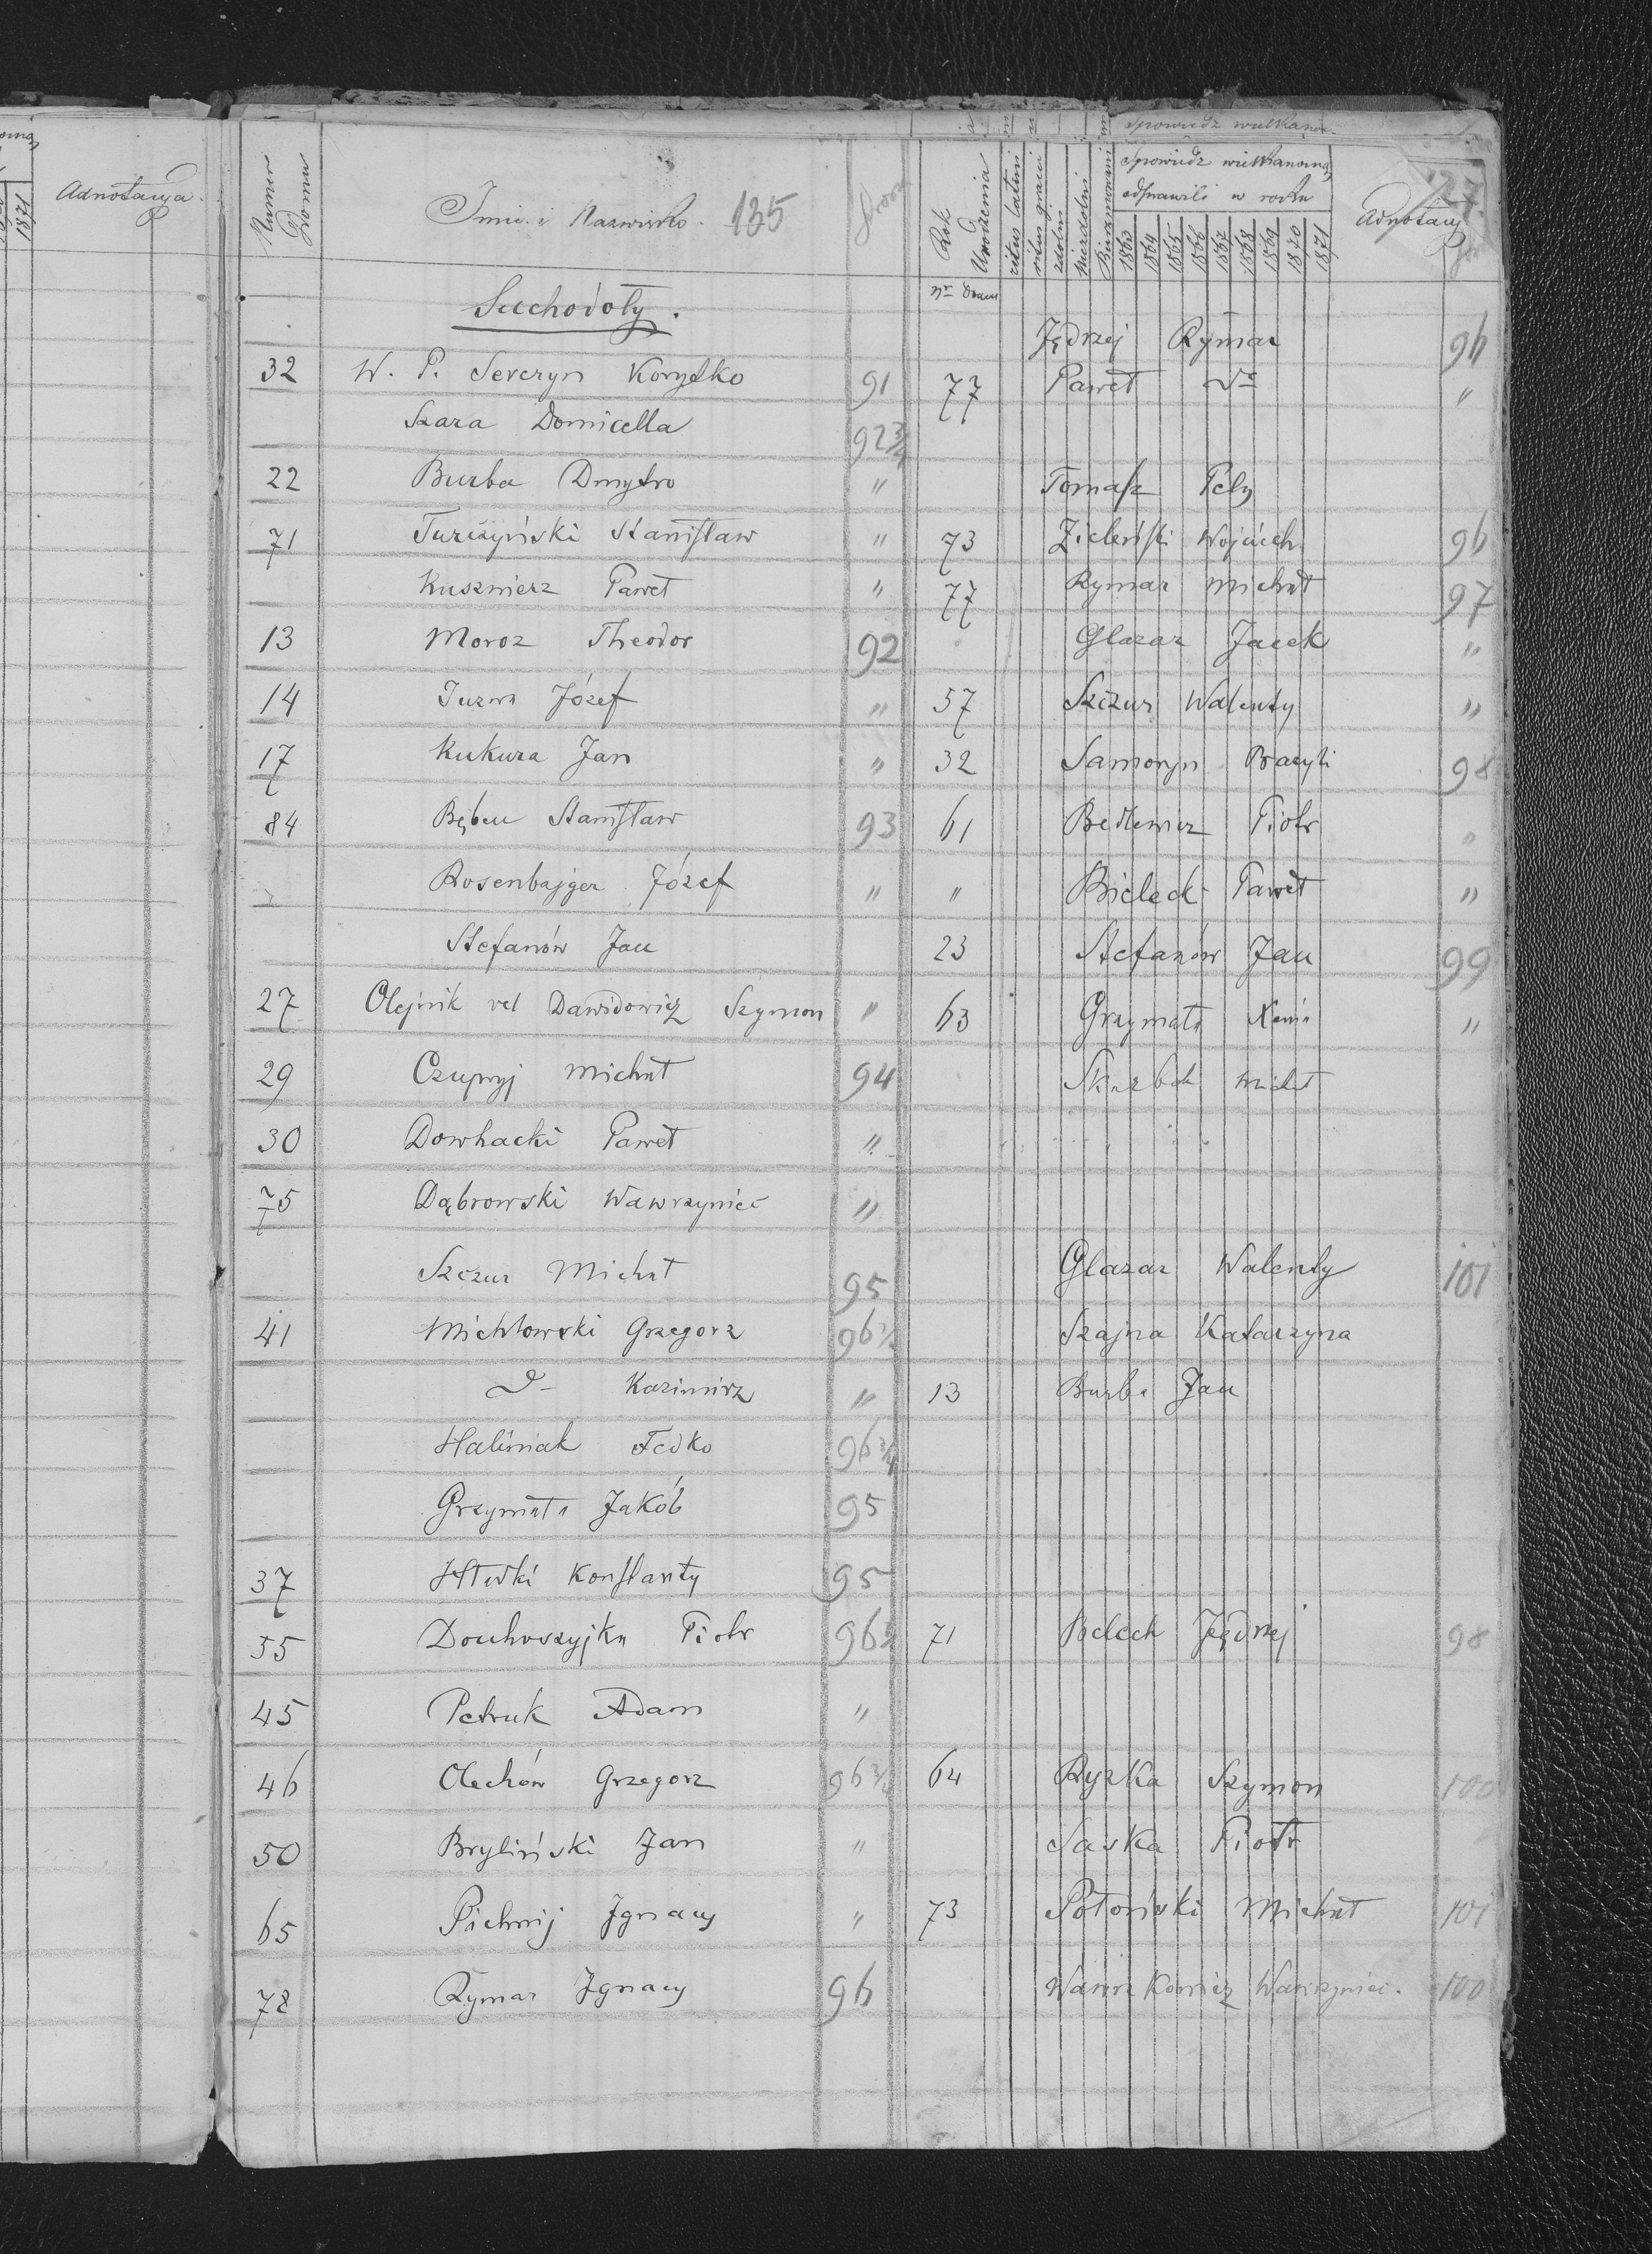 Adnotacya.
1871
Spowiedz wielkanoc.
Numer Domu
Imie i Nazwisko. 135
Strona
Rok Urodzenia
ritus latini
ritus graeci
zdolni
Niezdolni
Bierzmowani
Spowiedz wielkanocną
odprawili w roku
1863 1864 1865 1866 1867 1868 1869 1870 1871
Adnotacy
127.
Suchodoły.
Nr Domu
Jędrzej Rymar 96
32 W. P. Seweryn Korytko 91 77 Paweł do "
Szara Domicella 92 3/4
22 Burba Dmytro " Tomasz Pely
71 Turczyński Stanisław " 73 Zieleński Wojciech 96
Kuszmierz Paweł " 77 Rymar Michał 97
13 Moroz Theodor 92 Glazar Jacek "
14 Juzwa Józef " 57 Szczur Walenty "
17 Kukura Jan " 32 Samoryn 98
84 Bęben Stanisław 93 61 Piotr "
Rosenbajger Józef " " Bielecki Paweł "
Stefanów Jan 23 Stefanów Jan 99
27 Olejnik vel Dawidowicz Szymon " 63 Grzymała "
29 Czupryj Michał 94 Skarbek Michał
30 Dowhacki Paweł "
75 Dąbrowski Wawrzyniec "
Szczur Michał 95 Glazar Walenty 101
41 Michłowski Grzegorz 96 1/2 Szajna Katarzyna
D- Kazimirz " 13 Burba Jan
Haliniak Fedko 96 3/4
Grzymała Jakób 95
37 Konstanty 95
55 Douhoszyjka Piotr 96 1/2 71 Belech Jędrzej 98
45 Petruk Adam "
46 Olechów Grzegorz 96 3/4 64 Ryzka Szymon 100
50 Bryliński Jan " Saska Piotr
65 Pichnij Ignacy " 73 Połoński Michał 101
78 Rymar Ignacy 96 Wawrzkowicz Wawrzyniec. 100